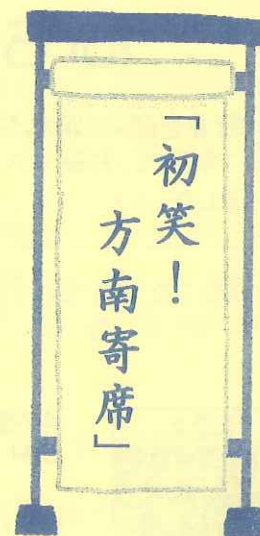 「初笑！
方南寄席」